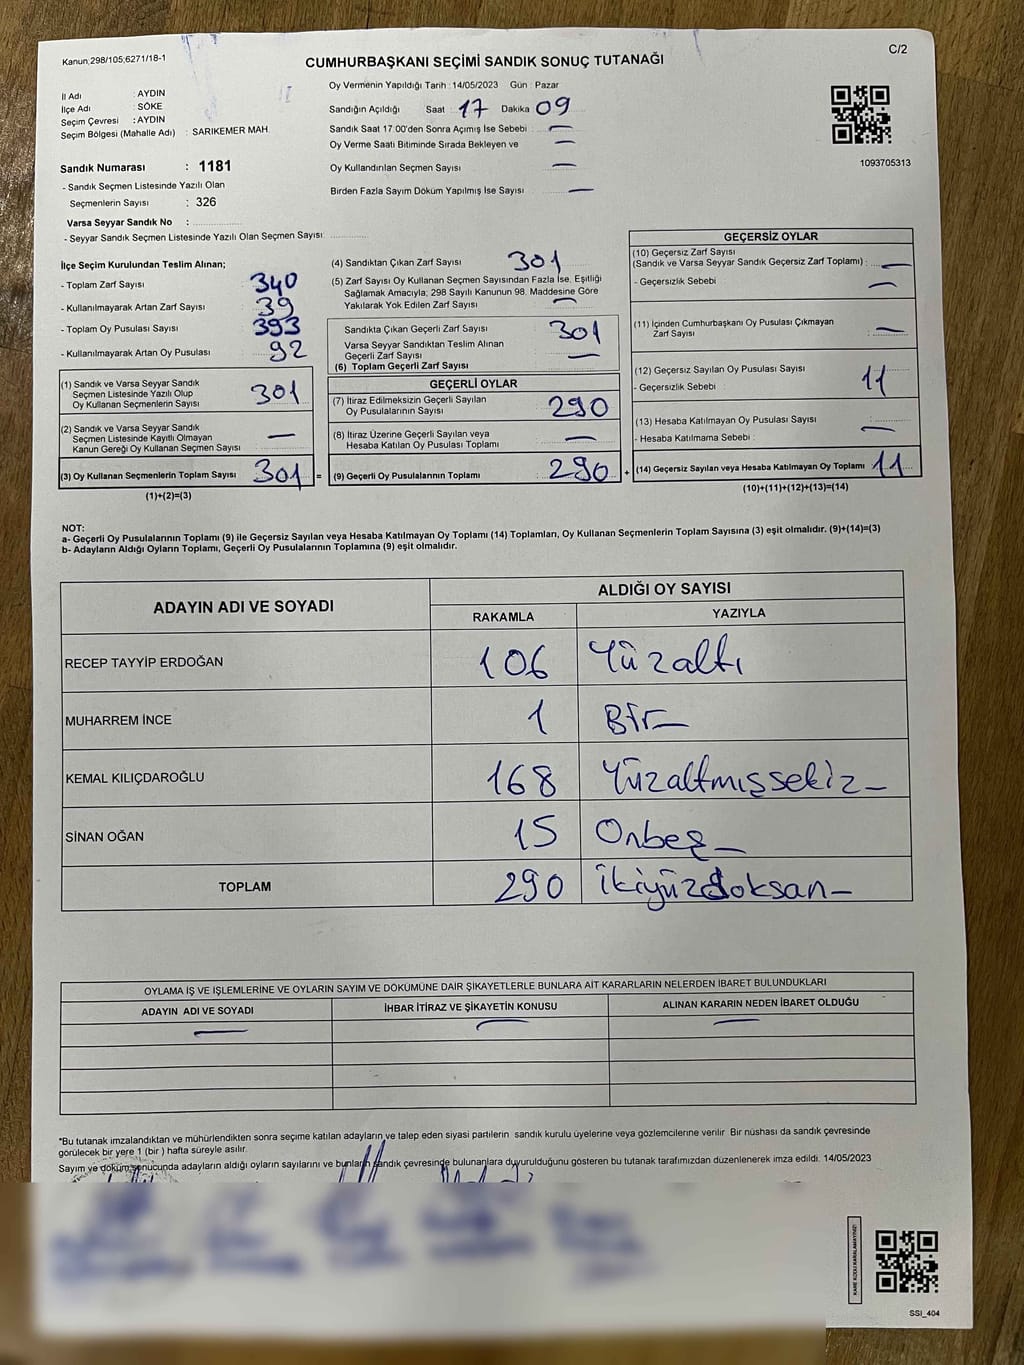 Kanun;298/105;6271/18-1
C/2
CUMHURBAŞKANI SEÇİMİ SANDIK SONUÇ TUTANAĞI
İl Adı : AYDIN
İlçe Adı : SÖKE
Seçim Çevresi : AYDIN
Seçim Bölgesi (Mahalle Adı) : SARIKEMER MAH.
Oy Vermenin Yapıldığı Tarih : 14/05/2023 Gün : Pazar
Sandığın Açıldığı Saat 17 Dakika 09
Sandık Saat 17.00'den Sonra Açımış İse Sebebi : —
Oy Verme Saati Bitiminde Sırada Bekleyen ve —
Oy Kullandırılan Seçmen Sayısı —
Birden Fazla Sayım Döküm Yapılmış İse Sayısı —
1093705313
Sandık Numarası : 1181
- Sandık Seçmen Listesinde Yazılı Olan
Seçmenlerin Sayısı : 326
Varsa Seyyar Sandık No :
- Seyyar Sandık Seçmen Listesinde Yazılı Olan Seçmen Sayısı:
İlçe Seçim Kurulundan Teslim Alınan;
- Toplam Zarf Sayısı 340
- Kullanılmayarak Artan Zarf Sayısı 39
- Toplam Oy Pusulası Sayısı 393
- Kullanılmayarak Artan Oy Pusulası 92
(1) Sandık ve Varsa Seyyar Sandık
Seçmen Listesinde Yazılı Olup
Oy Kullanan Seçmenlerin Sayısı 301
(2) Sandık ve Varsa Seyyar Sandık
Seçmen Listesinde Kayıtlı Olmayan
Kanun Gereği Oy Kullanan Seçmen Sayısı —
(3) Oy Kullanan Seçmenlerin Toplam Sayısı 301 =
(1)+(2)=(3)
(4) Sandıktan Çıkan Zarf Sayısı 301
(5) Zarf Sayısı Oy Kullanan Seçmen Sayısından Fazla İse, Eşitliği
Sağlamak Amacıyla; 298 Sayılı Kanunun 98. Maddesine Göre
Yakılarak Yok Edilen Zarf Sayısı —
Sandıkta Çıkan Geçerli Zarf Sayısı 301
Varsa Seyyar Sandıktan Teslim Alınan
Geçerli Zarf Sayısı —
(6) Toplam Geçerli Zarf Sayısı
GEÇERLİ OYLAR
(7) İtiraz Edilmeksizin Geçerli Sayılan
Oy Pusulalarının Sayısı 290
(8) İtiraz Üzerine Geçerli Sayılan veya
Hesaba Katılan Oy Pusulası Toplamı —
(9) Geçerli Oy Pusulalarının Toplamı 290 +
GEÇERSİZ OYLAR
(10) Geçersiz Zarf Sayısı
(Sandık ve Varsa Seyyar Sandık Geçersiz Zarf Toplamı) : —
- Geçersizlik Sebebi —
(11) İçinden Cumhurbaşkanı Oy Pusulası Çıkmayan
Zarf Sayısı —
(12) Geçersiz Sayılan Oy Pusulası Sayısı 11
- Geçersizlik Sebebi :
(13) Hesaba Katılmayan Oy Pusulası Sayısı : —
- Hesaba Katılmama Sebebi :
(14) Geçersiz Sayılan veya Hesaba Katılmayan Oy Toplamı 11
(10)+(11)+(12)+(13)=(14)
NOT:
a- Geçerli Oy Pusulalarının Toplamı (9) ile Geçersiz Sayılan veya Hesaba Katılmayan Oy Toplamı (14) Toplamları, Oy Kullanan Seçmenlerin Toplam Sayısına (3) eşit olmalıdır. (9)+(14)=(3)
b- Adayların Aldığı Oyların Toplamı, Geçerli Oy Pusulalarının Toplamına (9) eşit olmalıdır.
ADAYIN ADI VE SOYADI
ALDIĞI OY SAYISI
RAKAMLA YAZIYLA
RECEP TAYYİP ERDOĞAN 106 Yüzaltı
MUHARREM İNCE 1 Bir—
KEMAL KILIÇDAROĞLU 168 Yüzaltmışsekiz—
SİNAN OĞAN 15 Onbeş—
TOPLAM 290 İkiyüzdoksan—
OYLAMA İŞ VE İŞLEMLERİNE VE OYLARIN SAYIM VE DÖKÜMÜNE DAİR ŞİKAYETLERLE BUNLARA AİT KARARLARIN NELERDEN İBARET BULUNDUKLARI
ADAYIN ADI VE SOYADI İHBAR İTİRAZ VE ŞİKAYETİN KONUSU ALINAN KARARIN NEDEN İBARET OLDUĞU
— — —
*Bu tutanak imzalandıktan ve mühürlendikten sonra seçime katılan adayların ve talep eden siyasi partilerin sandık kurulu üyelerine veya gözlemcilerine verilir. Bir nüshası da sandık çevresinde
görülecek bir yere 1 (bir) hafta süreyle asılır.
Sayım ve döküm sonucunda adayların aldığı oyların sayılarını ve bunların sandık çevresinde bulunanlara duyurulduğunu gösteren bu tutanak tarafımızdan düzenlenerek imza edildi. 14/05/2023
KARE KODU KARALAMAYINIZ!
SSİ_404